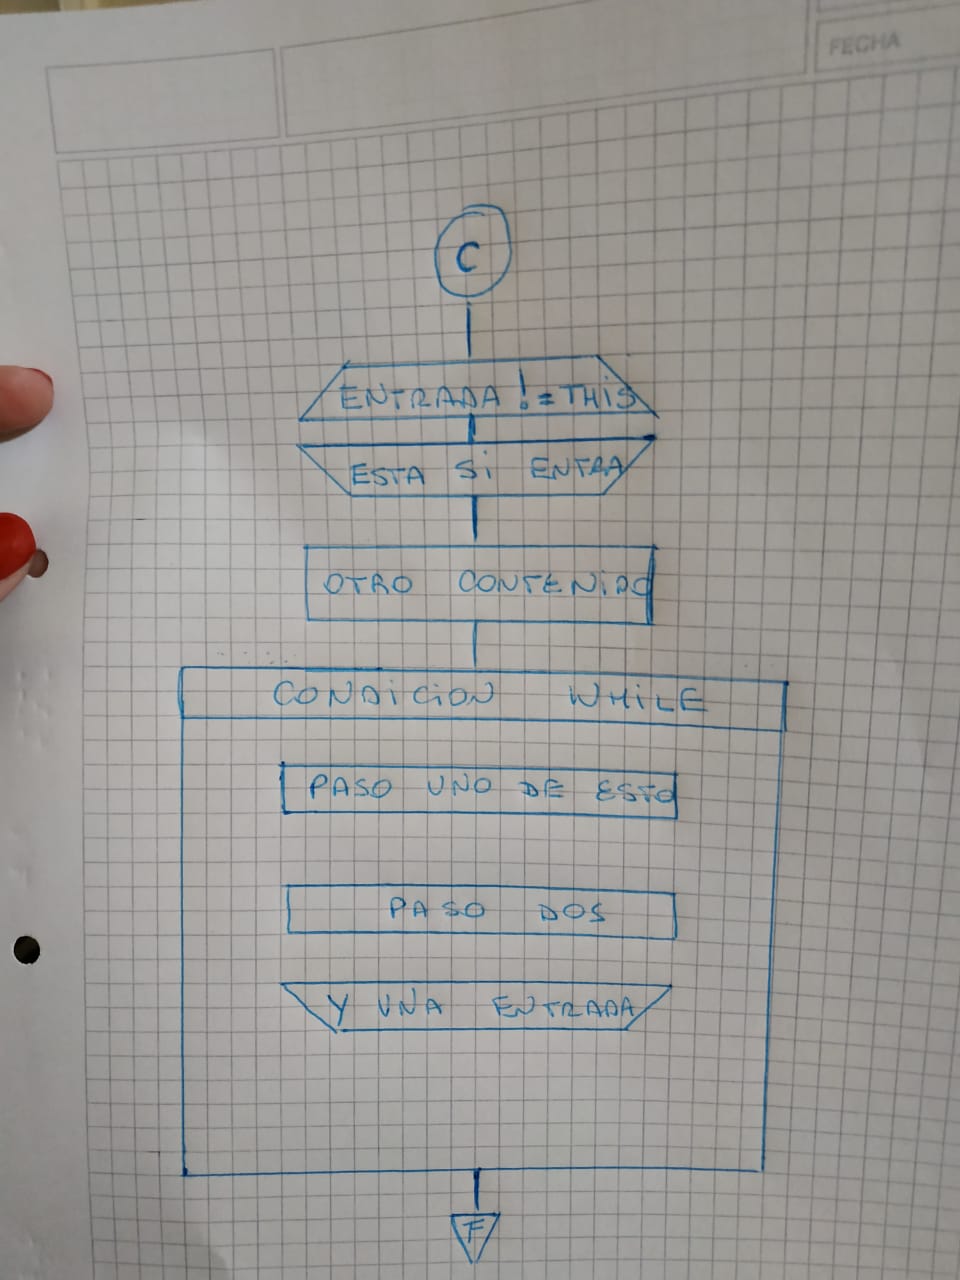 FECHA
C
ENTRADA != THIS
ESTA SI ENTRA
OTRO CONTENIDO
CONDICION WHILE
PASO UNO DE ESTO
PASO DOS
Y UNA ENTRADA
F